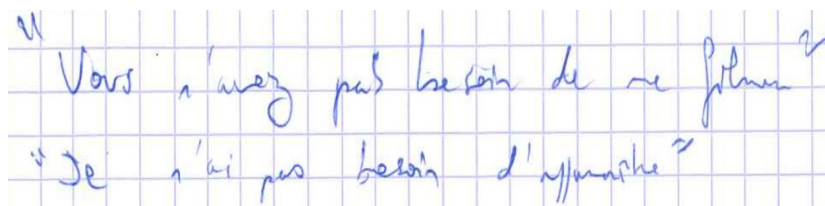 "Vous n'avez pas besoin de me filmer"
"Je n'ai pas besoin d'apparaître"